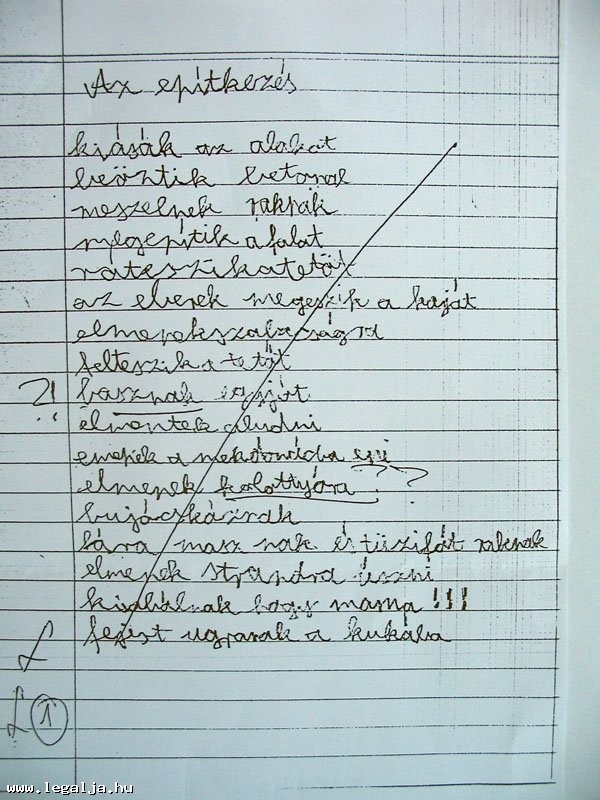 Az epítkezés
kiásák az alakat
beöntik betonal
meszelnek raknak
megepítik a falat
ráteszikatetőt
az eberek megeszik a kaját
elmenekszabaságra
felteszik a tetőt
?! basznak egyját
elmentek aludni
emenek a mekdónádba eni
elmenek kalottyóra ? ?
bujácskáznak
fára masz nak és tüzifát raknak
elmenek strandra úszni
kiabálnak hogy mama !!!
fejest ugranak a kukába
1
www.legalja.hu